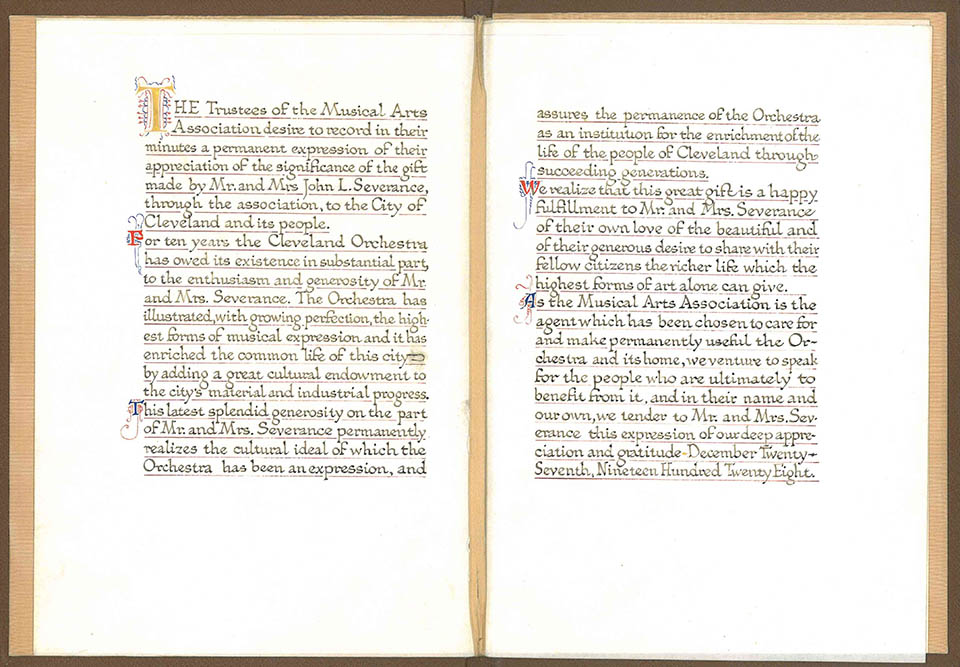 THE Trustees of the Musical Arts
Association desire to record in their
minutes a permanent expression of their
appreciation of the significance of the gift
made by Mr. and Mrs John L. Severance,
through the association, to the City of
Cleveland and its people.
For ten years the Cleveland Orchestra
has owed its existence in substantial part,
to the enthusiasm and generosity of Mr.
and Mrs. Severance. The Orchestra has
illustrated, with growing perfection, the high-
est forms of musical expression and it has
enriched the common life of this city
by adding a great cultural endowment to
the city's material and industrial progress.
This latest splendid generosity on the part
of Mr. and Mrs. Severance permanently
realizes the cultural ideal of which the
Orchestra has been an expression, and
assures the permanence of the Orchestra
as an institution for the enrichment of the
life of the people of Cleveland through
succeeding generations.
We realize that this great gift is a happy
fulfillment to Mr. and Mrs. Severance
of their own love of the beautiful and
of their generous desire to share with their
fellow citizens the richer life which the
highest forms of art alone can give.
As the Musical Arts Association is the
agent which has been chosen to care for
and make permanently useful the Or-
chestra and its home, we venture to speak
for the people who are ultimately to
benefit from it, and in their name and
our own, we tender to Mr. and Mrs. Sev-
erance this expression of our deep appre-
ciation and gratitude-December Twenty-
Seventh, Nineteen Hundred Twenty Eight.